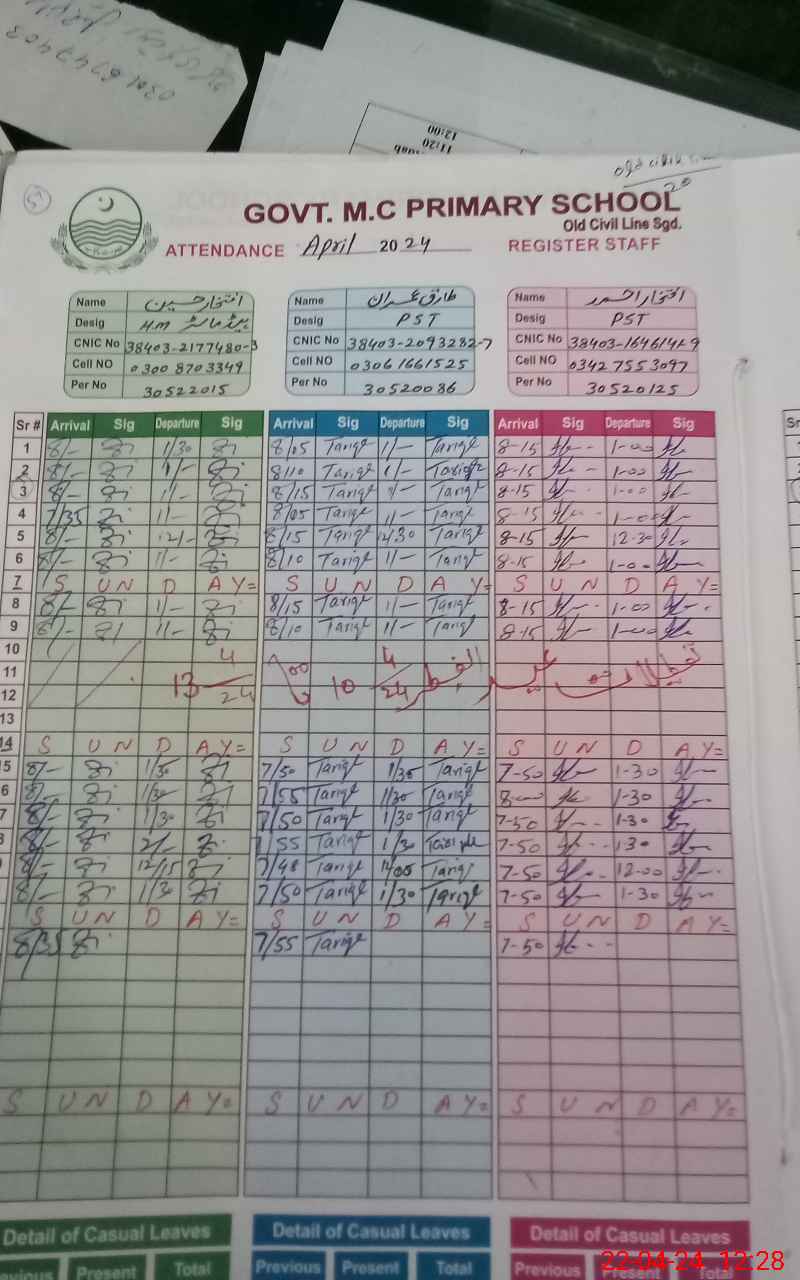 0301 6747403
12:00
11:20
GOVT. M.C PRIMARY SCHOOL
Old Civil Line Sgd.
ATTENDANCE April 2024 REGISTER STAFF
Name افتخار حسین Name طارق عمران Name افتخار احمد
Desig ہیڈ ماسٹر H.M Desig PST Desig PST
CNIC No 38403-2177480-3 CNIC No 38403-2093282-7 CNIC No
Cell NO 0300 8703349 Cell NO 03061661525 Cell NO 0342 7553097
Per No 30522015 Per No 30520086 Per No 30520125
Sr # Arrival Sig Departure Sig Arrival Sig Departure Sig Arrival Sig Departure Sig
1 8/- 1/30 8/05 Tariq 1/- Tariq 8-15 1-00
2 8/- 1/- 8/10 Tariq 1/- Tariq 8-15 1-00
3 8/- 1/- 8/15 Tariq 1/- Tariq 8-15 1-00
4 7/35 1/- 8/05 Tariq 1/- Tariq 8-15 1-00
5 8/- 12/- 8/15 Tariq 12/30 Tariq 8-15 12-30
6 8/- 1/- 8/10 Tariq 1/- Tariq 8-15 1-00
7 S U N D A Y= S U N D A Y= S U N D A Y=
8 8/- 1/- 8/15 Tariq 1/- Tariq 8-15 1-00
9 8/- 1/- 8/10 Tariq 1/- Tariq 8-15 1-00
10
11 13 4/24 10 4/24 تعطیلات عید الفطر
12
13
14 S U N D A Y= S U N D A Y= S U N D A Y=
5 8/- 1/30 7/50 Tariq 1/30 Tariq 7-50 1-30
6 8/- 1/30 7/55 Tariq 1/30 Tariq 8-00 1-30
7 8/- 1/30 7/50 Tariq 1/30 Tariq 7-50 1-30
8/- 2/- 7/55 Tariq 1/30 Tariq 7-50 1-30
8/- 12/15 7/48 Tariq Tariq 7-50 12-00
8/- 1/30 7/50 Tariq 1/30 Tariq 7-50 1-30
S U N D A Y= S U N D A Y= S U N D A Y=
8/35 7/55 Tariq 7-50
S U N D A Y= S U N D A Y= S U N D A Y=
Detail of Casual Leaves Detail of Casual Leaves Detail of Casual Leaves
Previous Present Total Previous Present Total Previous Present Total
22-04-24 12:28